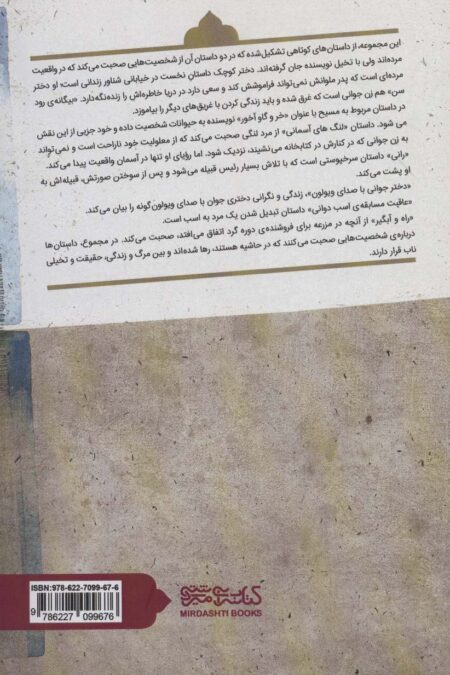 این مجموعه، از داستان‌های کوتاهی تشکیل‌شده که در دو داستان آن از شخصیت‌هایی صحبت می‌کند که در واقعیت
مرده‌اند ولی با تخیل نویسنده جان گرفته‌اند. دختر کوچک داستان نخست در خیابانی شناور زندانی است؛ او دختر
مرده‌ای است که پدر ملوانش نمی‌تواند فراموشش کند و سعی دارد در دریا خاطره‌اش را زنده‌نگه‌دارد. «بیگانه‌ی رود
سن» هم زن جوانی است که غرق شده و باید زندگی کردن با غریق‌های دیگر را بیاموزد.
در داستان مربوط به مسیح با عنوان «خر و گاو آخور» نویسنده به حیوانات شخصیت داده و خود جزیی از این نقش
می شود. داستان «لنگ های آسمانی» از مرد لنگی صحبت می‌کند که از معلولیت خود ناراحت است و نمی‌تواند
به زن جوانی که در کنارش در کتابخانه می‌نشیند، نزدیک شود. اما رؤیای او تنها در آسمان واقعیت پیدا می‌کند.
«رانی» داستان سرخپوستی است که با تلاش بسیار رئیس قبیله می‌شود و پس از سوختن صورتش، قبیله‌اش به
او پشت می‌کند.
«دختر جوانی با صدای ویولون»، زندگی و نگرانی دختری جوان با صدای ویولون‌گونه را بیان می‌کند.
«عاقبت مسابقه‌ی اسب دوانی» داستان تبدیل شدن یک مرد به اسب است.
«راه و آبگیر» از آنچه در مزرعه برای فروشنده‌ی دوره گرد اتفاق می‌افتد، صحبت می‌کند. در مجموع، داستان‌ها
درباره‌ی شخصیت‌هایی صحبت می‌کنند که در حاشیه هستند، رها شده‌اند و بین مرگ و زندگی، حقیقت و تخیلی
ناب قرار دارند.
ISBN: 978-622-7099-67-6
9 786227 099676
کتابسرای میردشتی
MIRDASHTI BOOKS